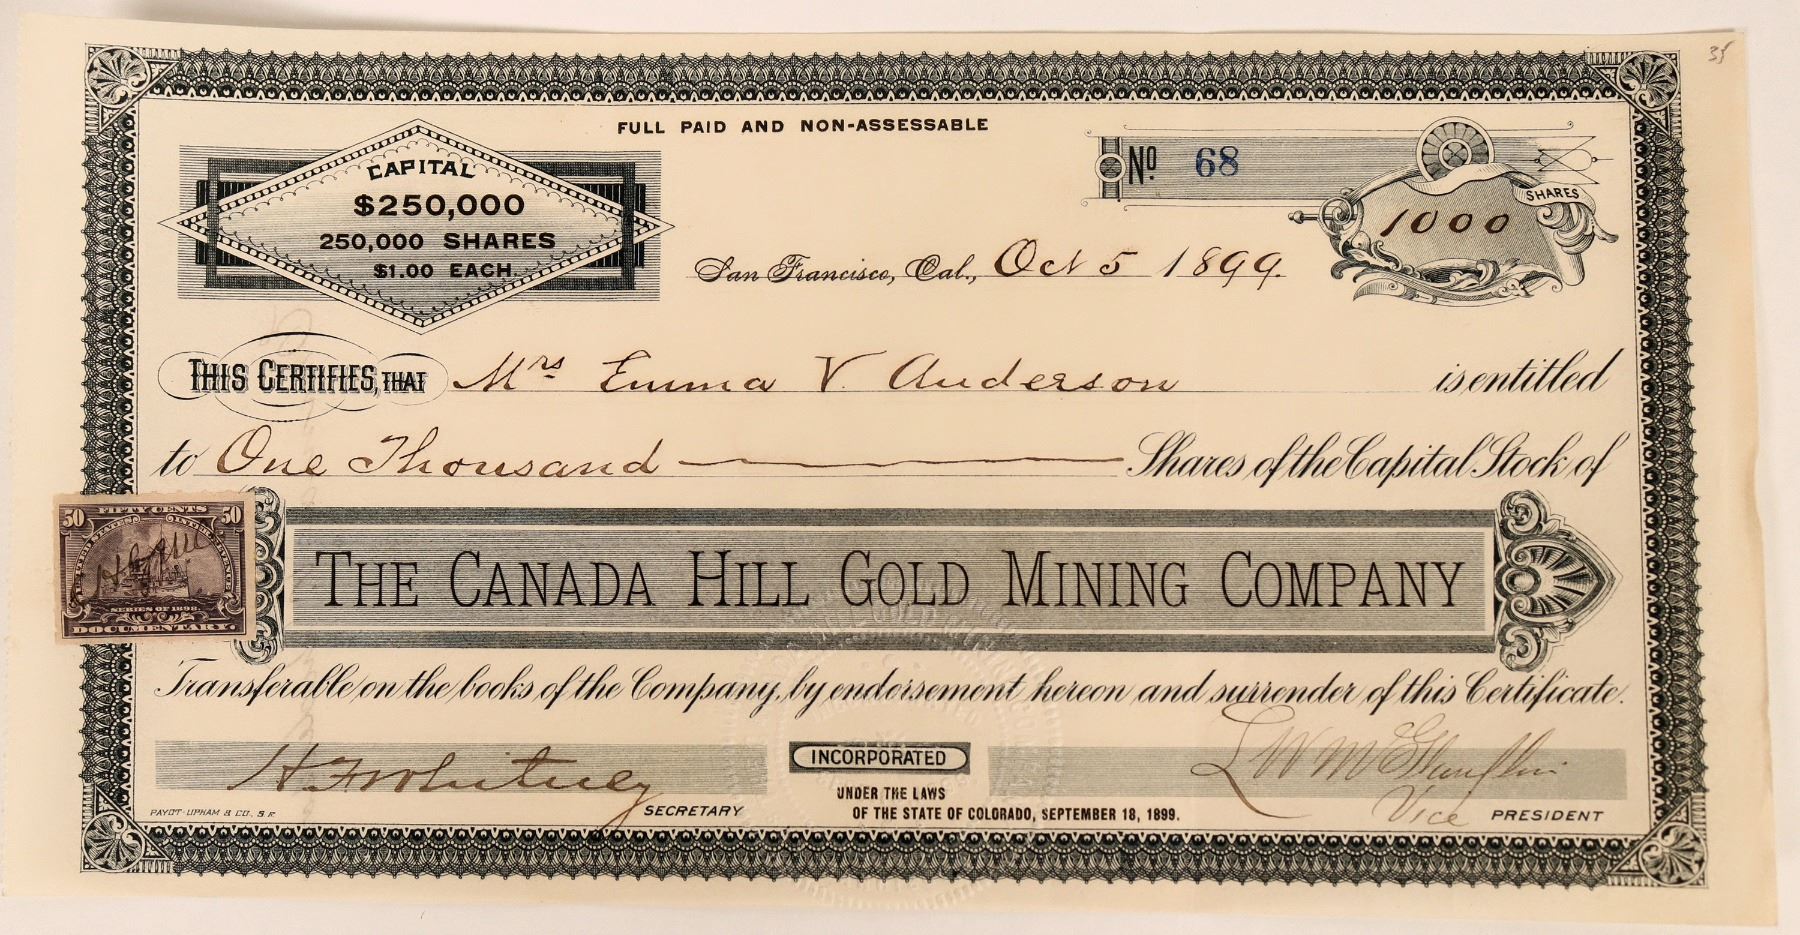 35
FULL PAID AND NON-ASSESSABLE
CAPITAL
$250,000
250,000 SHARES
$1.00 EACH.
Nº 68
SHARES
1000
San Francisco, Cal., Oct 5 1899.
THIS CERTIFIES, THAT Mrs Emma V. Anderson is entitled
to One Thousand Shares of the Capital Stock of
50 FIFTY CENTS 50
UNITED STATES INTER. REVENUE
SERIES OF 1898.
DOCUMENTARY.
THE CANADA HILL GOLD MINING COMPANY
Transferable on the books of the Company, by endorsement hereon and surrender of this Certificate.
H F Whitney
SECRETARY
INCORPORATED
UNDER THE LAWS
OF THE STATE OF COLORADO, SEPTEMBER 18, 1899.
L W McGlauflin
Vice PRESIDENT
PAYOT-UPHAM & CO. S.F.